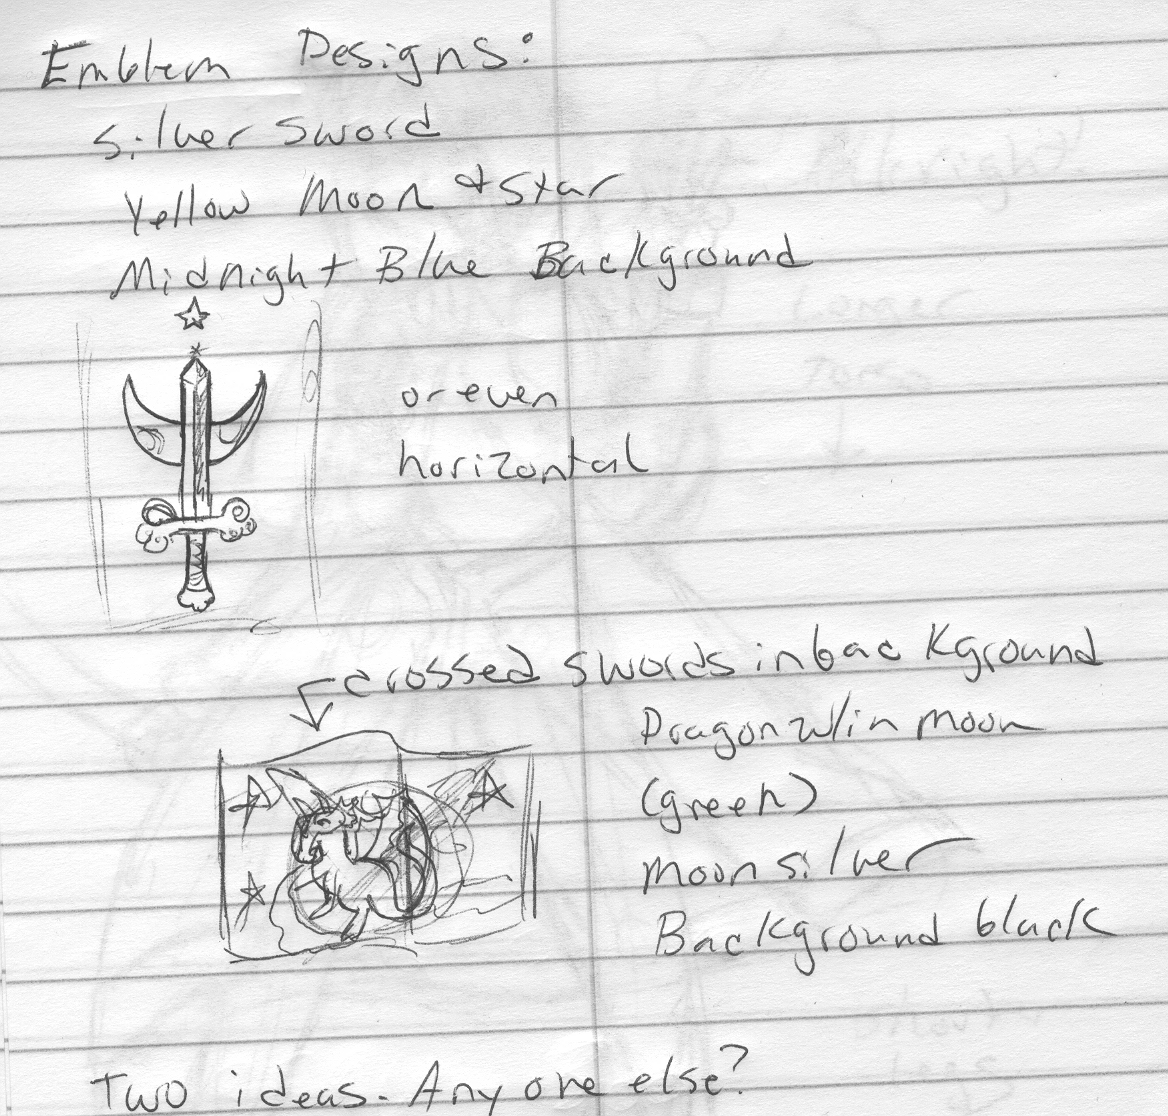 Emblem Designs:
Silver Sword
Yellow Moon & Star
Midnight Blue Background
or even
horizontal
crossed swords in background
Dragon w/in moon
(green)
moon silver
Background black
Two ideas. Anyone else?